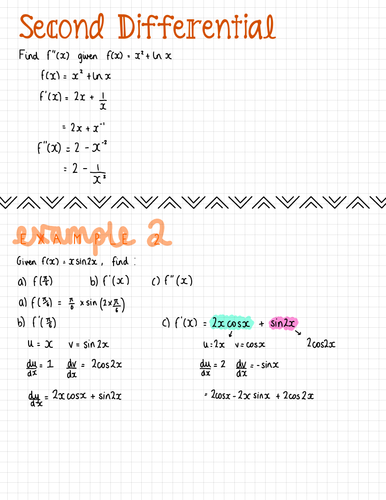 Second Differential
Find f"(x) given f(x) = x² + ln x
f(x) = x² + ln x
f'(x) = 2x + 1/x
= 2x + x⁻¹
f"(x) = 2 - x⁻²
= 2 - 1/x²
EXAMPLE 2
example 2
Given f(x) = x sin2x, find :
a) f(π/6) b) f'(x) c) f"(x)
a) f(π/6) = π/6 × sin (2×π/6)
b) f'(π/6)
u = x v = sin2x
du/dx = 1 dv/dx = 2cos2x
du/dx = 2x cosx + sin2x
c) f'(x) = 2x cosx + sin2x
u=2x v=cosx 2cos2x
du/dx = 2 dv/dx = -sinx
= 2cosx - 2x sinx + 2cos2x